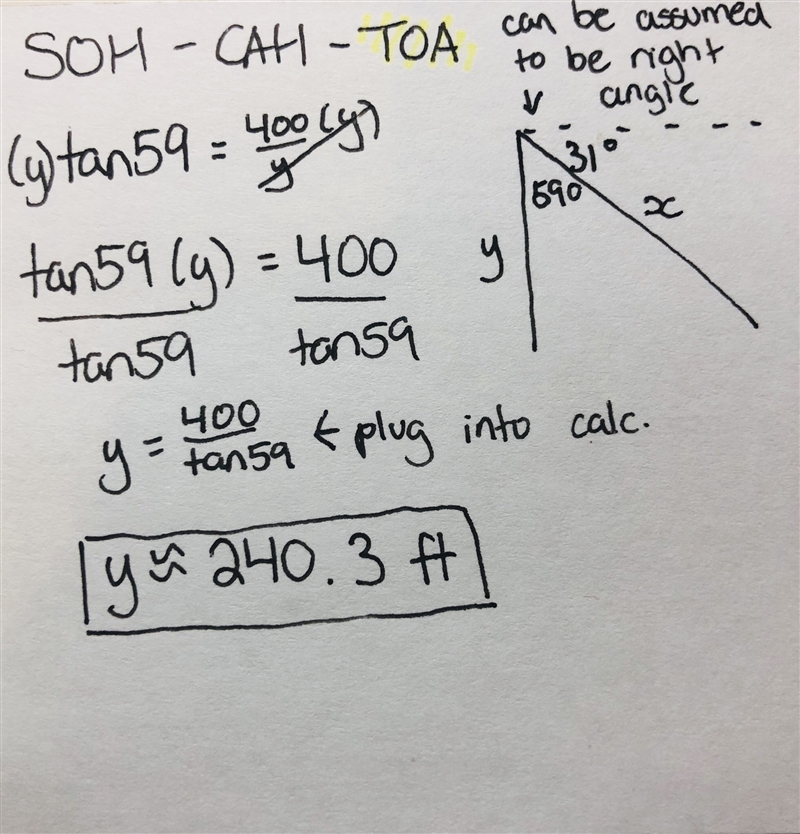 SOH - CAH - TOA
can be assumed
to be right
angle
(y)tan59 = 400/y (y)
31°
59°
x
y
tan59(y)/tan59 = 400/tan59
y = 400/tan59 ← plug into calc.
y ≈ 240.3 ft